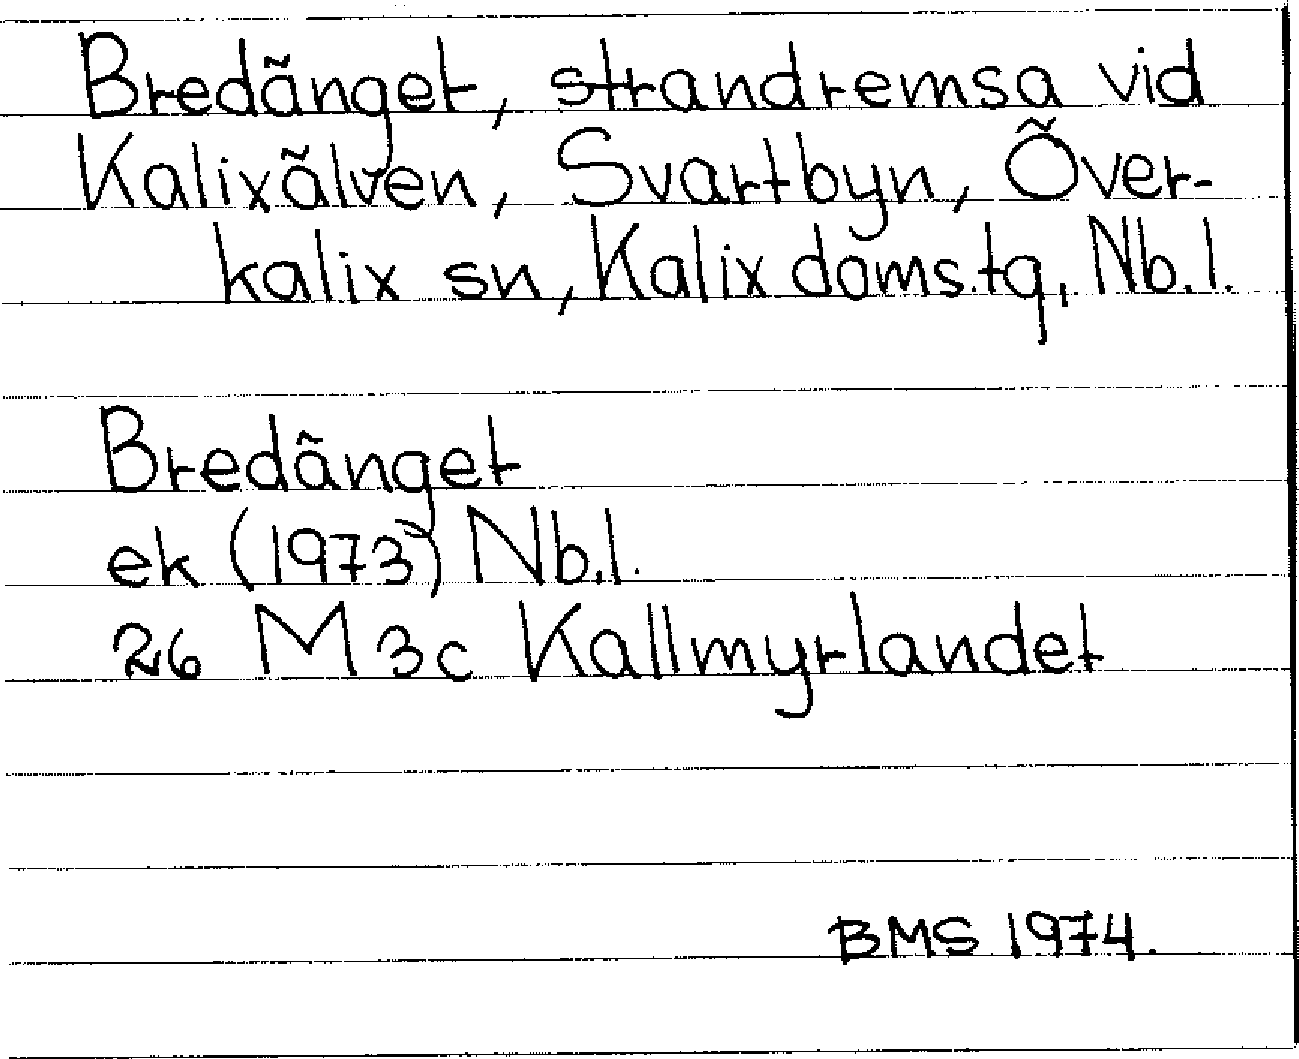 Bredänget, strandremsa vid
Kalixälven, Svartbyn, Över-
kalix sn, Kalix doms.tg, Nb.l.
Bredänget
ek (1973) Nb.l.
26 M 3c Kallmyrlandet
BMS 1974.